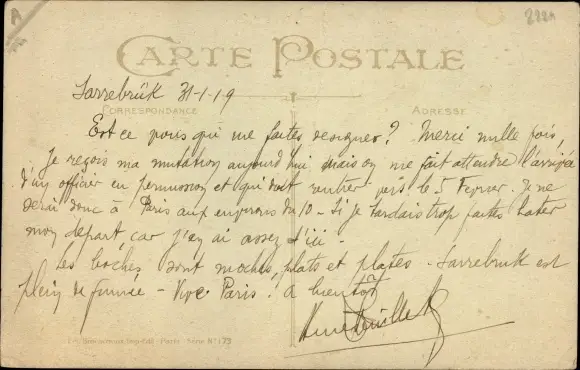 A
222a
CARTE POSTALE
Sarrebrück 31-1-19
CORRESPONDANCE
ADRESSE
Est ce vous qui me faites designer? Merci mille fois,
Je reçois ma mutation aujourd'hui mais on me fait attendre l'arrivée
d'un officier en permission et qui doit rentrer vers le 5 Fevrier. Je ne
serai donc à Paris aux environs du 10 - Si je tardais trop faites hater
mon départ, car j'en ai assez d'ici -
Les boches sont moches, plats et plates - Sarrebruk est
plein de fumée - Vive Paris! à bientôt
Paris - Série N° 173